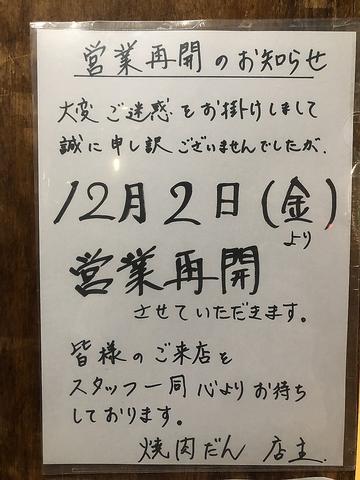 営業再開のお知らせ
大変ご迷惑をお掛けしまして
誠に申し訳ございませんでしたが、
12月2日(金)
より
営業再開
させていただきます。
皆様のご来店を
スタッフ一同心よりお待ち
しております。
焼肉だん 店主.